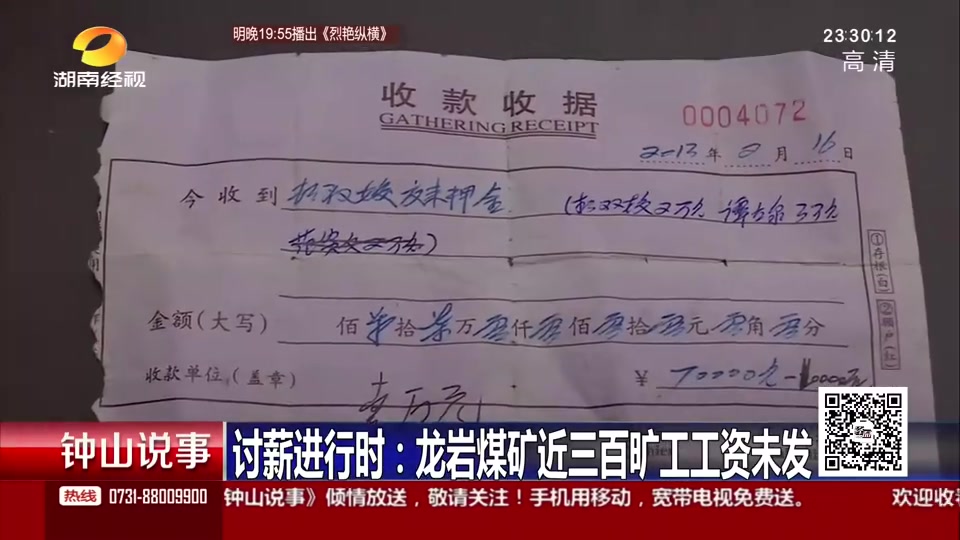 明晚19:55播出《烈艳纵横》
23:30:12
高清
湖南经视
收款收据
GATHERING RECEIPT
0004072
2013年2月16日
今收到 押金
金额(大写) 佰 拾 万零仟零佰零拾零元零角零分
收款单位(盖章) ¥ 70000元
壹万元
①存根(白) ②顾户(红)
钟山说事
讨薪进行时：龙岩煤矿近三百旷工工资未发
热线 0731-88009900
钟山说事》倾情放送，敬请关注！手机用移动，宽带电视免费送。 欢迎收看